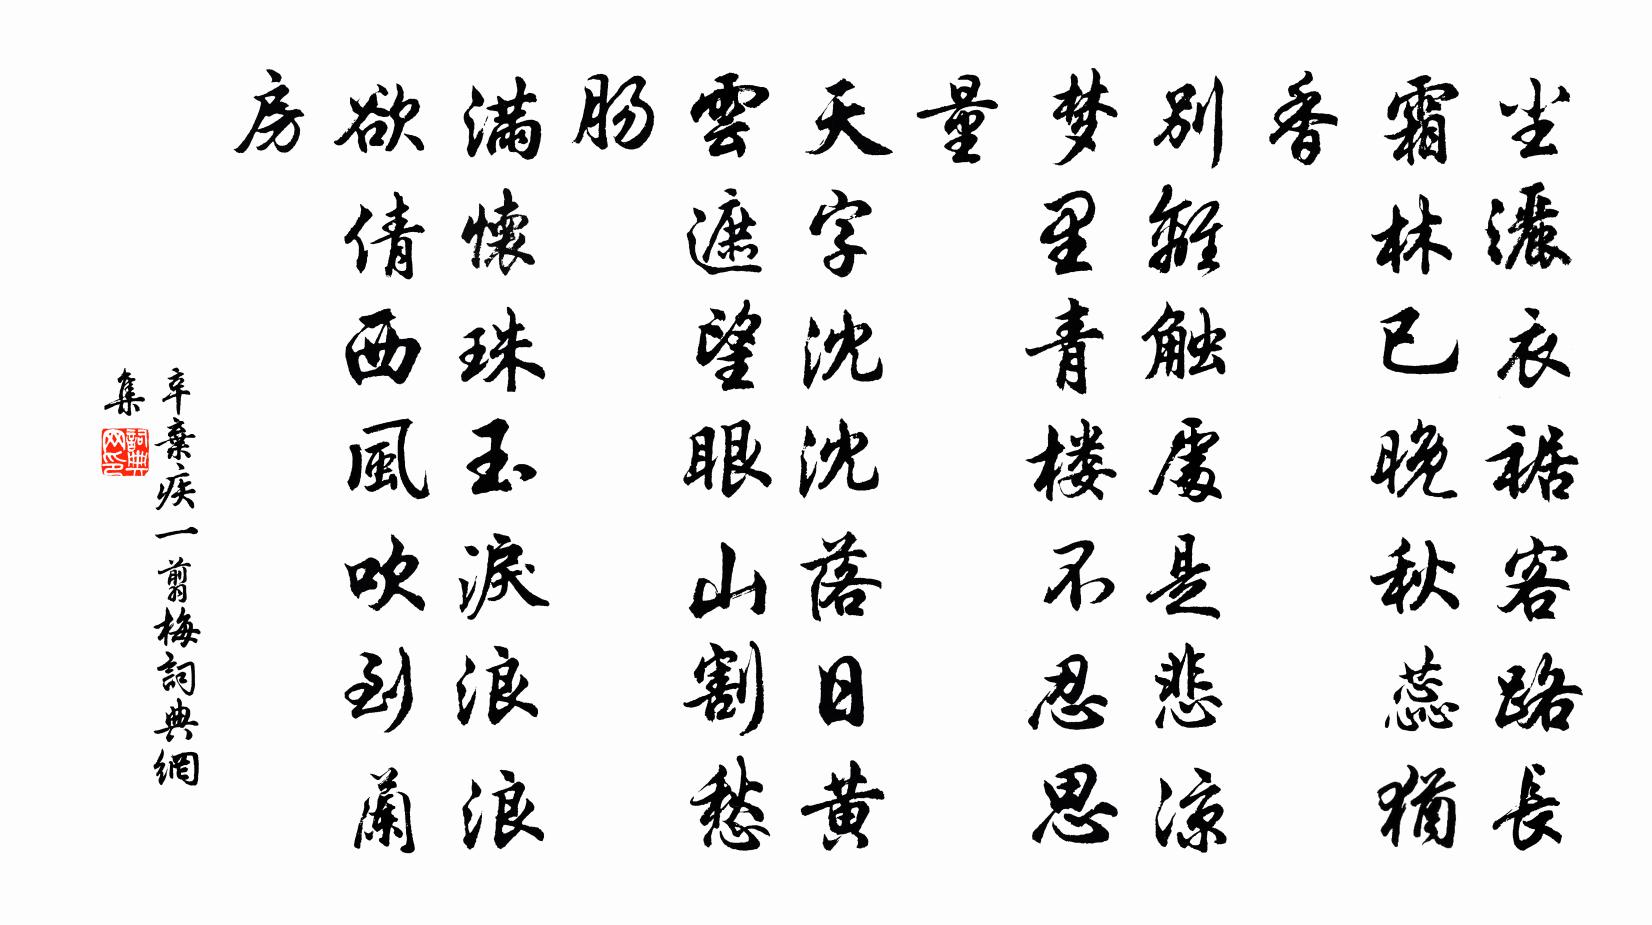 尘灑衣裾客路長
霜林已晚秋蕊猶
香
别離触處是悲凉
梦里青楼不忍思
量
天字沈沈落日黄
雲遮望眼山割愁
肠
滿懷珠玉淚浪浪
欲倩西風吹到蘭
房
辛棄疾一剪梅詞典網
集
詞典网印